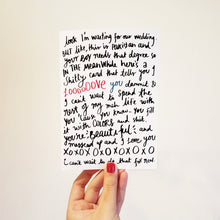 look I'm waiting for our wedding
BUT like, this is Parisian and
your Boy needs that degree. so
IN THE MEANWHILE here's a
shitty card that tells you I
LOOOOOOVE you dammit &
I can't wait to spend the
rest of my meh life with
you 'cause you know.. you fill
it with colors and shit.
you're BEAUTiful and
massed up and I love you
XOXOXOXOXOXOXO
I can't wait to do that for real